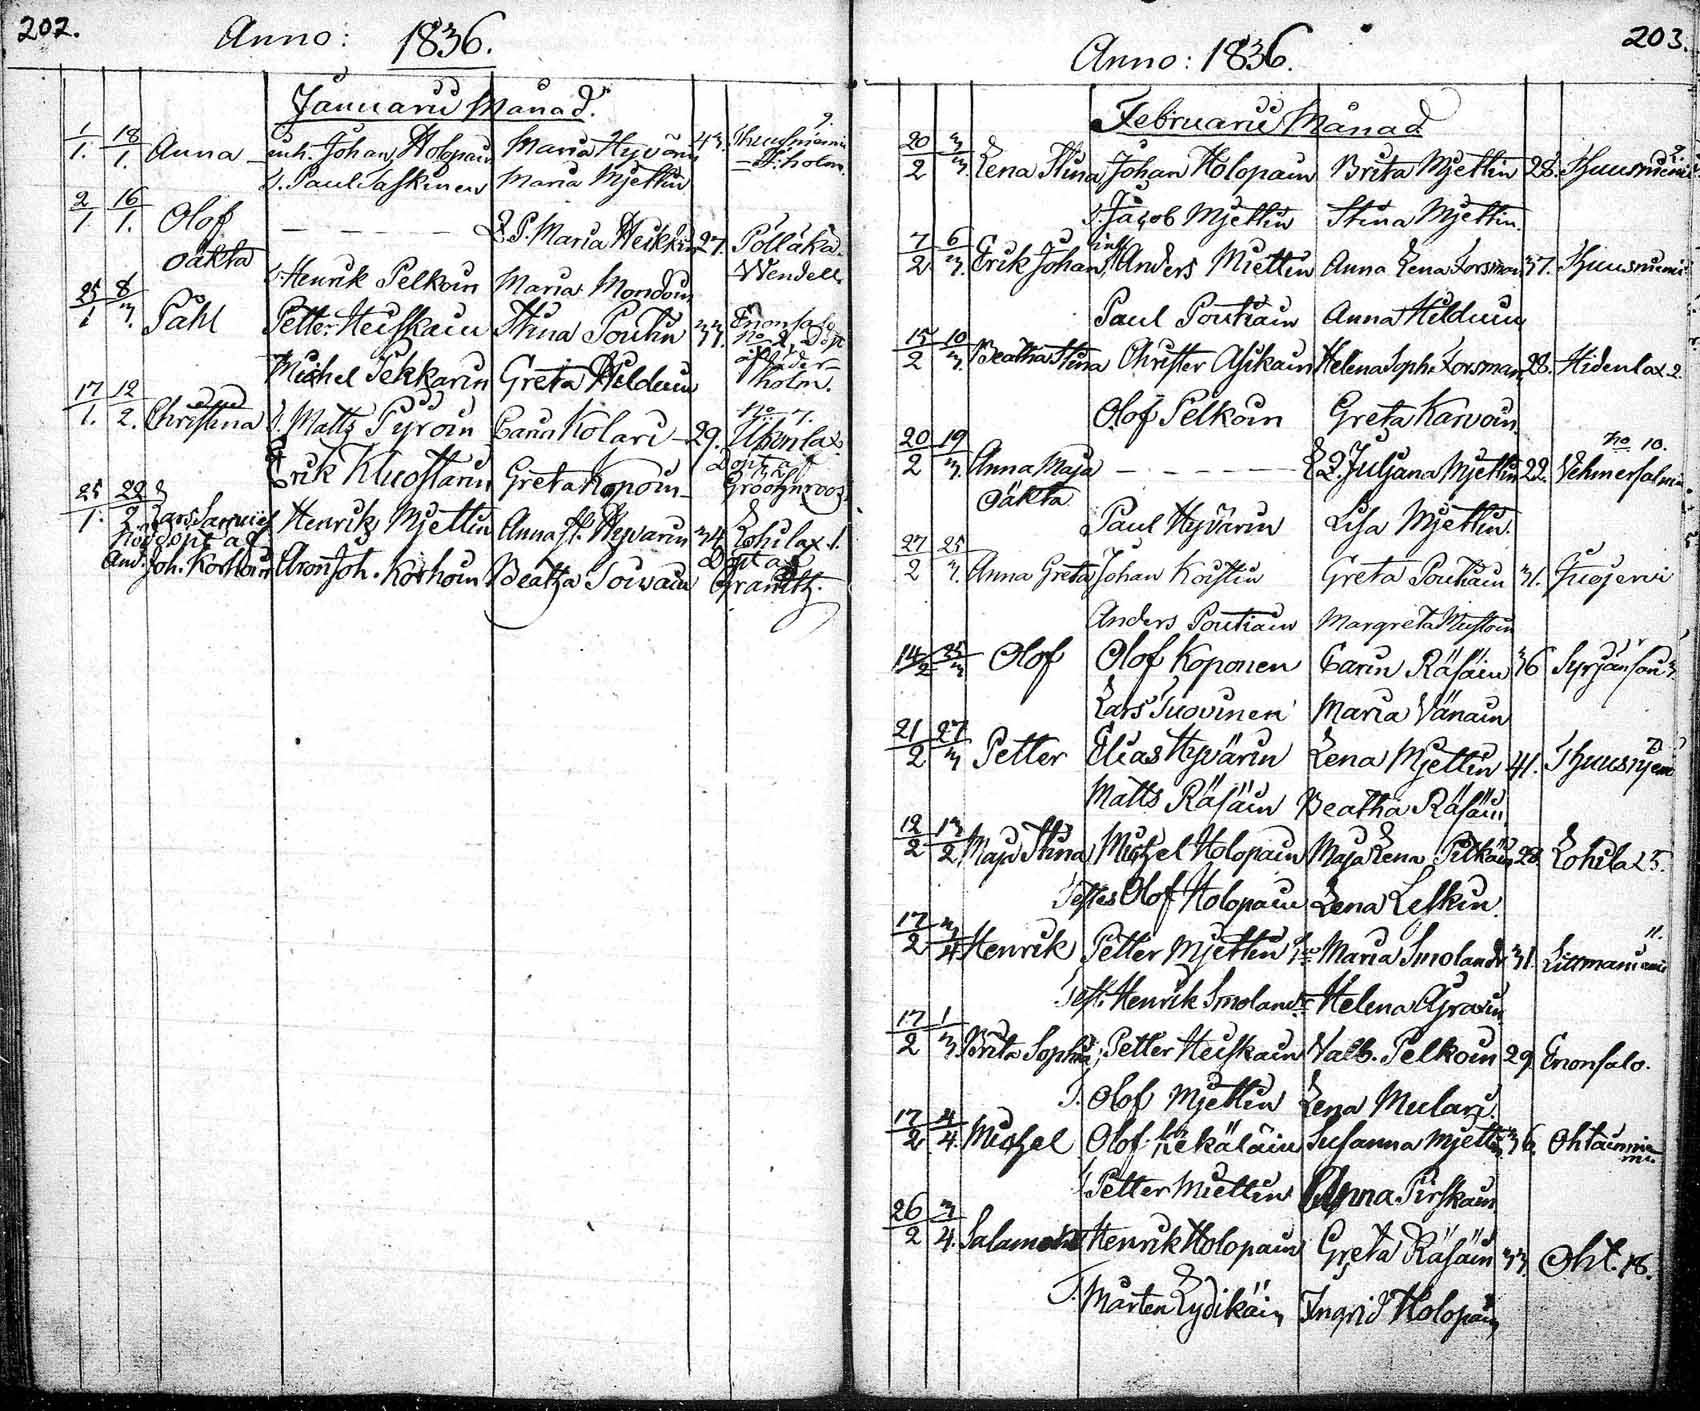 202.
Anno: 1836.
Januarii Månad.
1/1. 18/1. Anna inh. Johan Holopain Maria Hyvärin 43. Thuusniemi 2.
t. Paul Taskinen Maria Mjettin
2/1 16/1. Olof — — — — L. P. Maria Heikkin 27. Pölläkä.
oäkta t. Henrik Pelkoin Maria Mondoin Wendell
25/1 8/3. Påhl Petter Heiskain Stina Poutin 33. Enonsalo
Michel Pekkarin Greta Hilduin holm.
17/1. 12/2. Christina t. Matts Pyroin Carin Kolari 29. No 7. Ukonlax
Erik Kluostarin Greta Kopoin
25/1. 22/2 Lars Samuel Henrik Mjettin Anna St. Hyvärin 34. Lohilax 1.
Nöddöpt af Döpt af
And. Joh. Korhoin Aron Joh. Korhoin Beatha Toivain Granith.
203.
Anno: 1836.
Februarii Månad
20/2 3/3 Lena Stina Johan Holopain Brita Mjettin 28. Thuusniemi 2.
t. Jacob Mjettin Stina Mjettin
7/2 6/3. Erik Johan inh. Anders Miettin Anna Lena Forsman 37. Thuusniemi
Paul Poutiain Anna Hilduin
15/2 10/3. Beatha Stina Christer Asikain Helena Soph. Forsman 28. Hidenlax 2.
Olof Pelkoin Greta Karvoin.
20/2 19/3. Anna Maja — — — — L. P. Juljana Mjettin 22. No 10. Vehmersalmi
oäkta Paul Hyvärin Lisa Mjettin.
27/2 25/3. Anna Greta Johan Koistin Greta Poutiain 31. Juojervi
Anders Poutiain Margreta Mustoin
14/2 25/3 Olof Olof Koponen Carin Räsäin 36 Syrjänsari
Lars Tuovinen Maria Vänäin
21/2 27/3 Petter Elias Hyvärin Lena Mjettin 41. Thuusnjemi
Matts Räsäin Beatha Räsäin.
12/2 13/2 Maja Stina Michel Holopain Maja Lena Pitkäin 28. Lohila 25.
Testes Olof Holopain Lena Leskin.
17/2 3/4 Henrik Petter Mjettin Maria Smoland 31. Littmaniemi 11.
Test. Henrik Smoland Helena
17/2 1/3 Brita Sophia Petter Heiskain Valb. Pelkoin 29. Enonsalo.
T. Olof Mjettin Lena Mulari.
17/2 4/4. Michel Olof Kekäläin Susanna Mjettin 36. Ohtaanniemi
t. Petter Miettin Anna Pirskain
26/2 3/4. Salamon Henrik Holopain Greta Räsäin 33. Oht. 18.
T. Mårten Lydikäin Ingrid Holopain